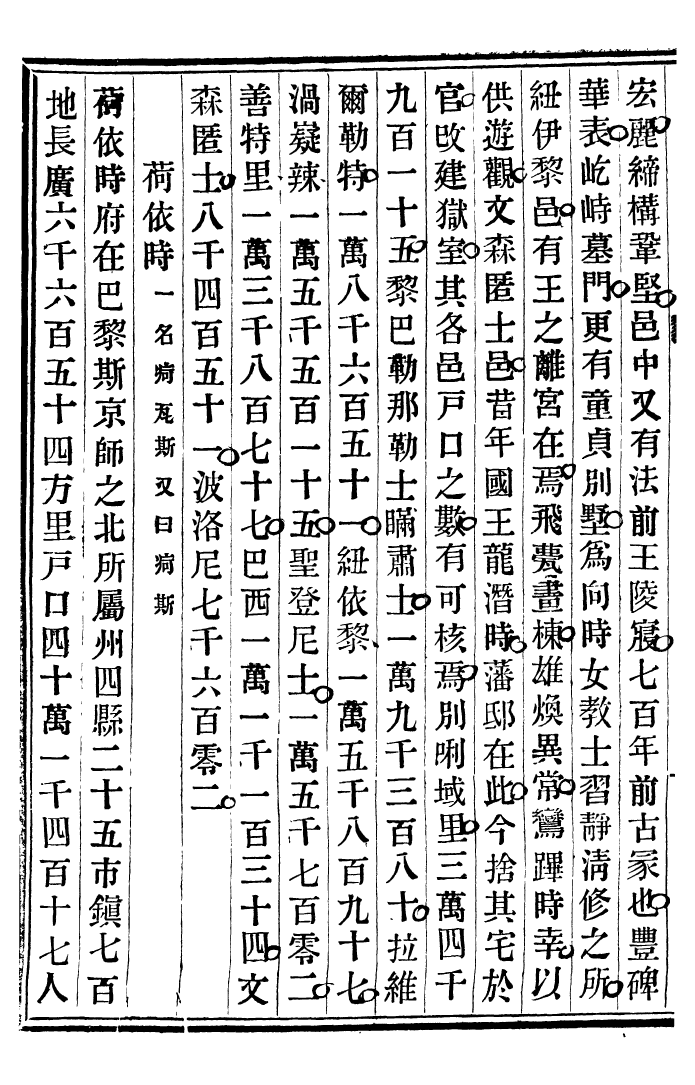 宏麗締構鞏堅邑中又有法前王陵寢七百年前古冢也豐碑
華表屹峙墓門更有童貞別墅爲向時女教士習靜清修之所
紐伊黎邑有王之離宮在焉飛甍畫棟雄煥異常鸞蹕時幸以
供遊觀文森匿士邑昔年國王龍潛時藩邸在此今捨其宅於
官改建獄室其各邑戸口之數有可核焉別唎域里三萬四千
九百一十五黎巴勒那勒士瞞肅士一萬九千三百八十拉維
爾勒特一萬八千六百五十一紐依黎一萬五千八百九十七
渦嶷辣一萬五千五百一十五聖登尼士一萬五千七百零二
善特里一萬三千八百七十七巴西一萬一千一百三十四文
森匿士八千四百五十一波洛尼七千六百零二
荷依時一名痾瓦斯又曰痾斯
荷依時府在巴黎斯京師之北所屬州四縣二十五市鎮七百
地長廣六千六百五十四方里戸口四十萬一千四百十七人